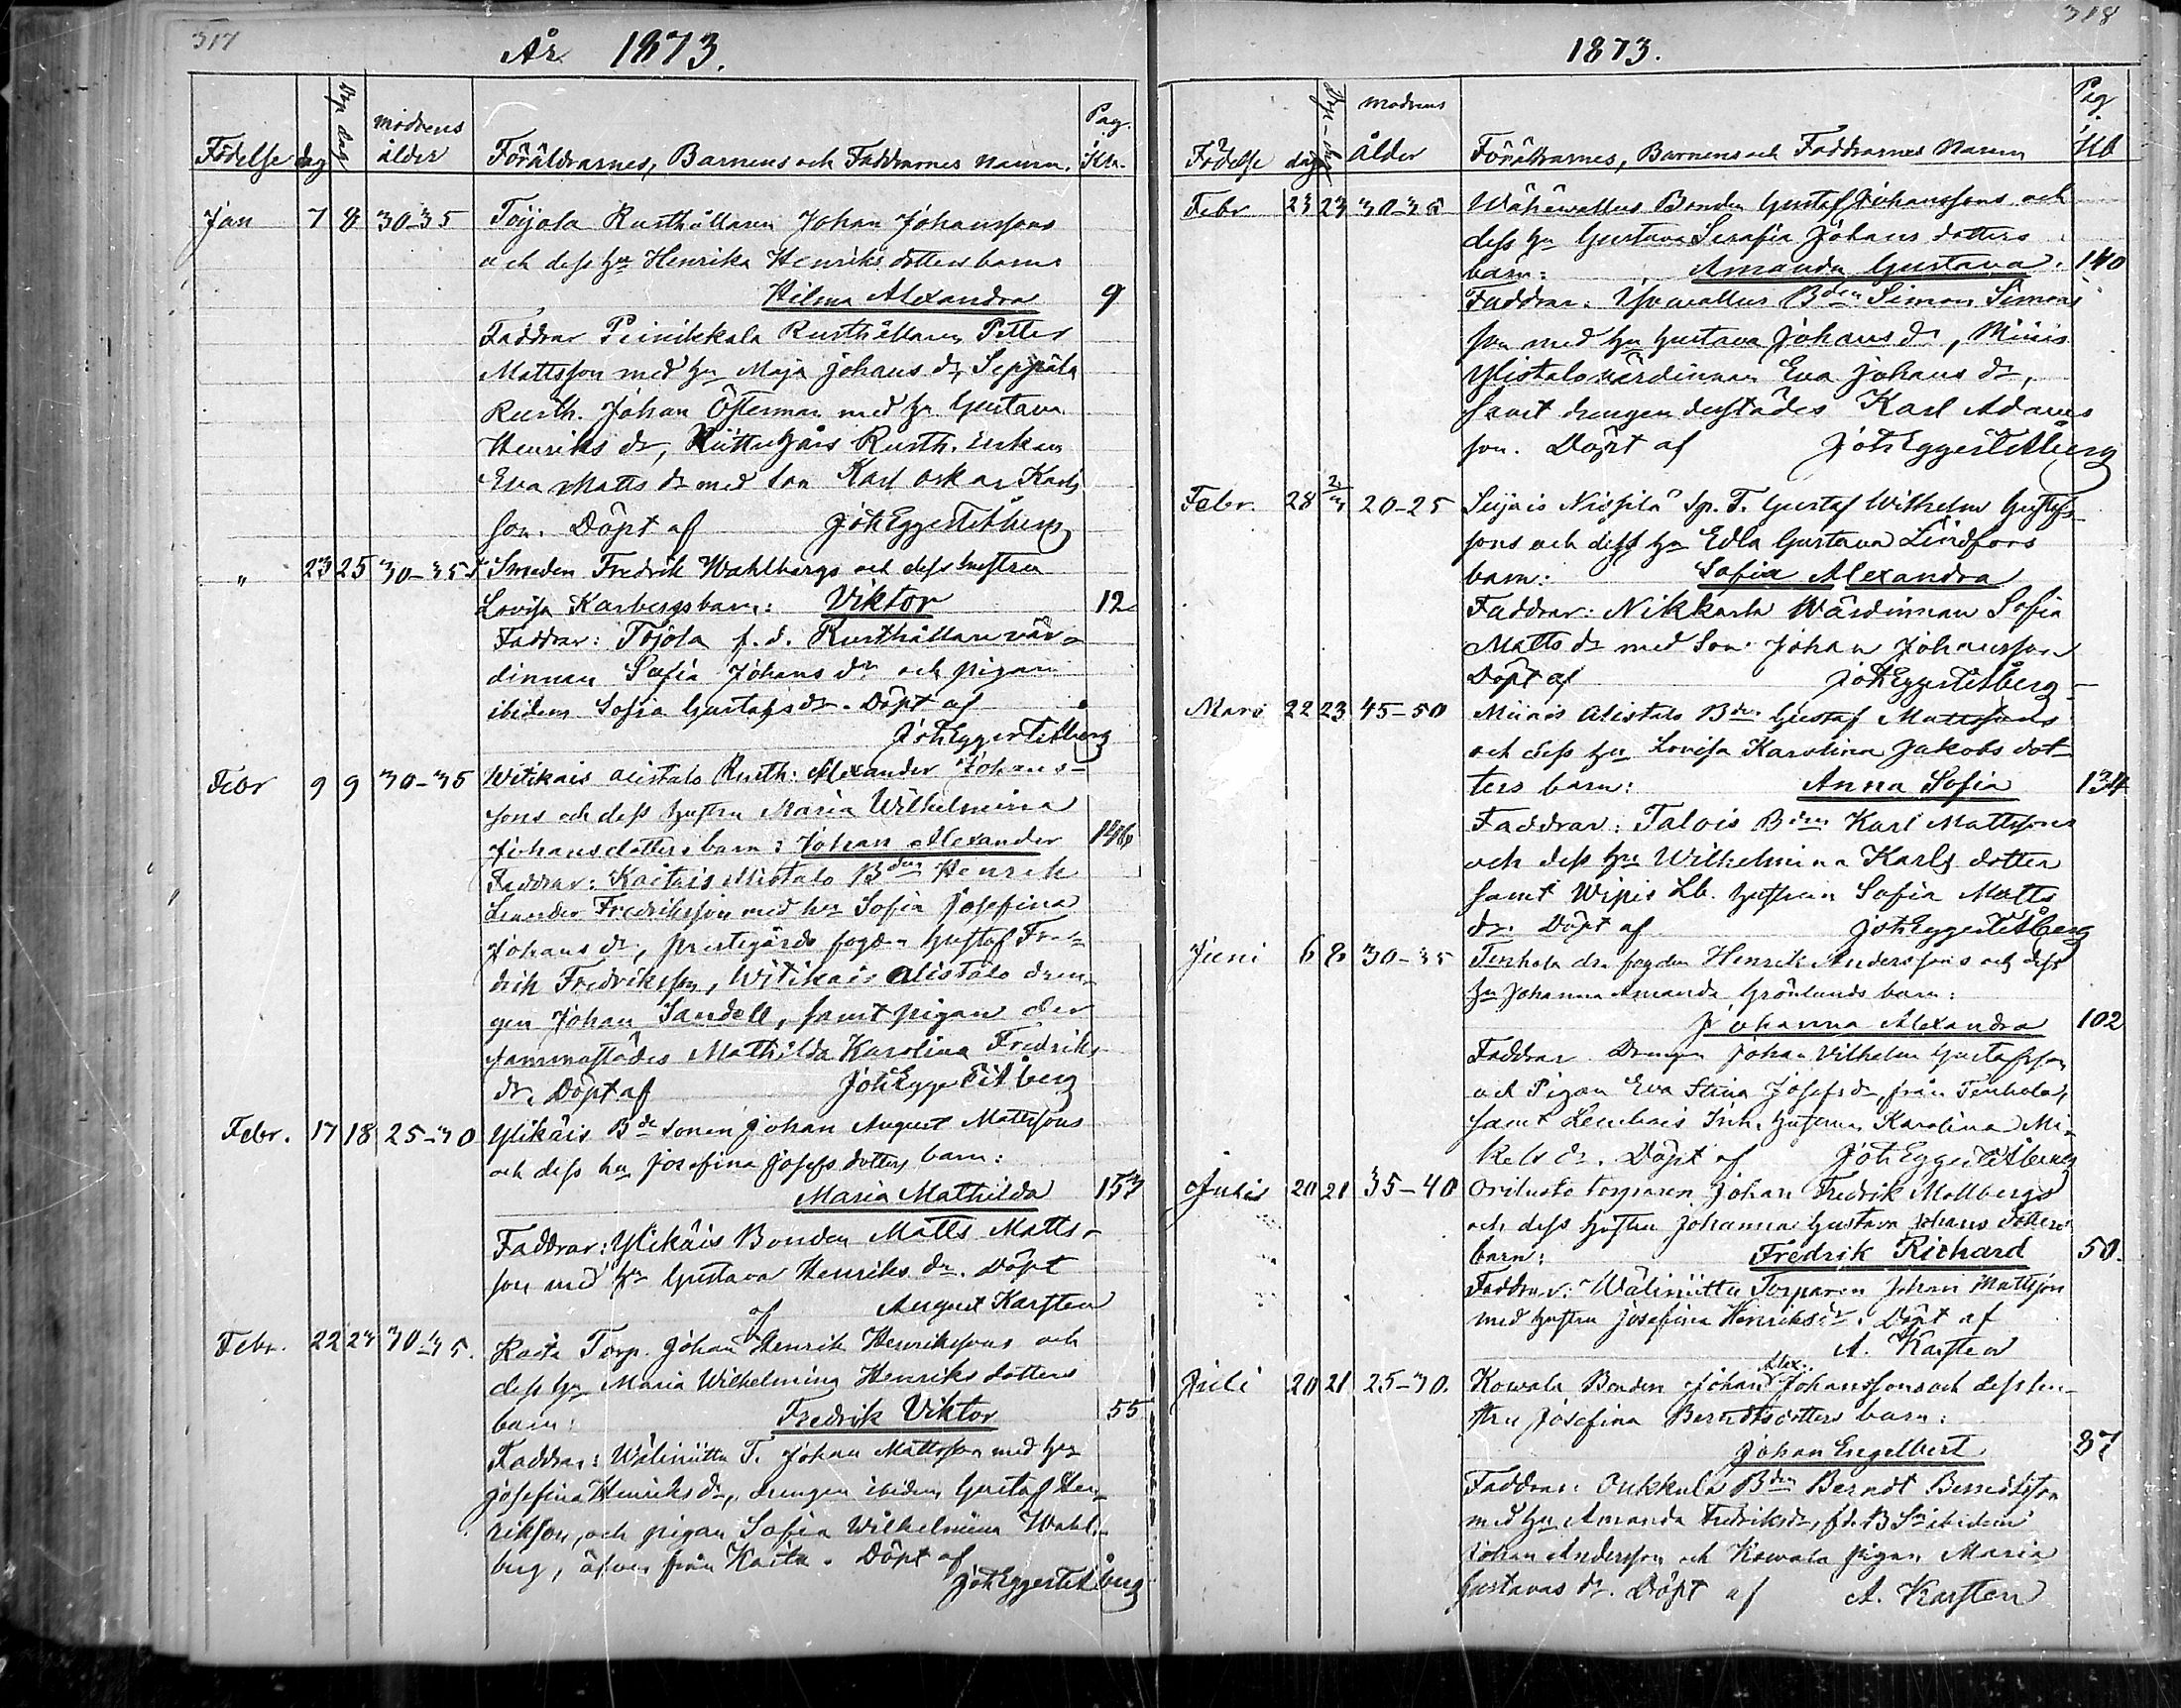 317
År 1873.
Födelse dag
Döp dag
modrens ålder
Föräldrarnes, Barnens och Faddrarnes namn.
Pag.
Jan 7 8 30-35 Toijola Rusthållaren Johan Johanssons
och dess hu Henrika Henriks dotters barn
Hilma Alexandra 9
Faddrar Peinikkala Rusthållaren Petter
Mattsson med hu Maja Johans dr, Seppälä
Rusth. Johan Österman med hu Gustava
Henriks dr, Rusth. Enkan
Eva Matts dr med son Karl Oskar Karls
son. Döpt af Joh Eggert Telberg
" 23 25 30-35 Smeden Fredrik Wahlbergs och dess hustru
Lovisa Karbergs barn: Viktor 12
Faddrar: Tojola f. d. Rusthållare vär-
dinnan Sofia Johans dr och pigan
ibidem Sofia Gustafs dr. Döpt af
Joh Eggert Telberg
Febr 9 9 30-35 Witikais Alistalo Rusth: Alexander Johans-
sons och dess hustru Maria Wilhelmina
Johansdotters barn: Johan Alexander 146
Faddrar: Kaitais Alistalo Bden Henrik
Leander Fredriksson med hu Sofia Josefina
Johans dr, prestegårds fogden Gustaf Fre-
drik Fredriksson, Witikais Alistalo dren-
gen Johan Sandell, samt pigan der
sammastädes Mathilda Karolina Fredriks
dr. Döpt af Joh Eggert Telberg
Febr. 17 18 25-30 Ylikäis Bde sonen Johan August Mattssons
och dess hu Josefina Josefs dotters barn:
Maria Mathilda 153
Faddrar: Ylikäis Bonden Matts Matts-
son med hu Gustava Henriks dr. Döpt
af August Karsten
Febr. 22 23 30-35. Kaita Torp. Johan Henrik Henrikssons och
dess hu Maria Wilhelmina Henriks dotters
barn: Fredrik Viktor 55
Faddrar: Wäliniittu T. Johan Mattsson med hu
Josefina Henriks dr, drengen ibidem Gustaf Hen-
rikson, och pigan Sofia Wilhelmina Wahl-
berg, äfven från Kaita. Döpt af
Joh Eggert Telberg
318
1873.
Födelse dag
modrens ålder
Föräldrarnes, Barnens och Faddrarnes Namn
Pag
Febr 23 23 30-35 Bonden Gustaf Johanssons och
dess hu Gustava Serafia Johans dotters
barn: Amanda Gustava. 140
Faddrar: Bden Simon Simons
son med hu Gustava Johans dr, Minis
Ylistalo värdinnan Eva Johans dr,
samt drengen derstädes Karl Adams
son. Döpt af Joh Eggert Telberg
Febr. 28 2/3 20-25 Seijais T. Gustaf Wilhelm Gustafs-
sons och dess hu Edla Gustava Lindfors
barn: Sofia Alexandra
Faddrar: Nikkarla Wärdinnan Sofia
Matts dr med Son Johan Johansson
Döpt af Joh Eggert Telberg
Mars 22 23 45-50 Minis Alistalo Bden Gustaf Mattssons
och dess hu Lovisa Karolina Jakobs dot-
ters barn: Anna Sofia 134
Faddrar: Talois Bden Karl Mattsson
och dess hu Wilhelmina Karls dotter
samt Wipis Lb. hustrun Sofia Matts
dr. Döpt af Joh Eggert Telberg
Juni 6 8 30-35 Tenhola dr. fogden Henrik Anderssons och dess
hu Johanna Amanda Grönlunds barn:
Johanna Alexandra 102
Faddrar Drengen Johan Vilhelm Gustafsson
och Pigan Eva Stina Josefs dr, från Tenhola,
samt Inh. hustrun Karolina Mi-
kels dr. Döpt af Joh Eggert Telberg
Julii 20 21 35-40 torparen Johan Fredrik Mollbergs
och dess hustru Johanna Gustava Johans dotters
barn: Fredrik Richard 50.
Faddrar: Wäliniittu Torparen Johan Mattsson
med hustru Josefina Henriks dr. Döpt af
A. Karsten
Juli 20 21 25-30. Kowala Bonden Johan Alex. Johanssons och dess hu-
stru Josefina Berndtsdotters barn:
Johan Engelbert 87
Faddrar: Onkkula Bden Berndt Berndtsson
med hu Amanda Fredriks dr, fd. B Sn ibidem
Johan Andersson och Kowala pigan Maria
Gustavas dr. Döpt af A. Karsten